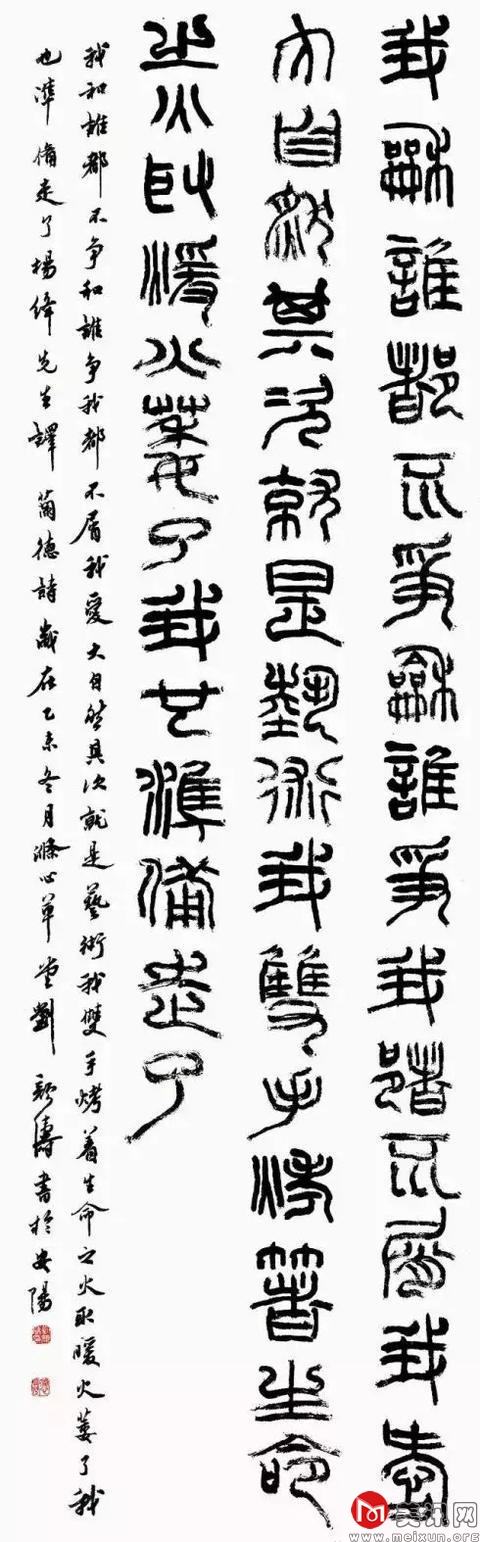 我龢誰都不爭龢誰爭我都不屑我愛
大自然其次就是藝術我雙手烤著生命
之火取暖火萎了我也準備走了
我和誰都不爭和誰爭我都不屑我愛大自然其次就是藝術我雙手烤着生命之火取暖火萎了我
也準備走了楊絳先生譯蘭德詩歲在乙未冬月滌心草堂劉顏濤書於安陽
美讯网
www.meixun.org